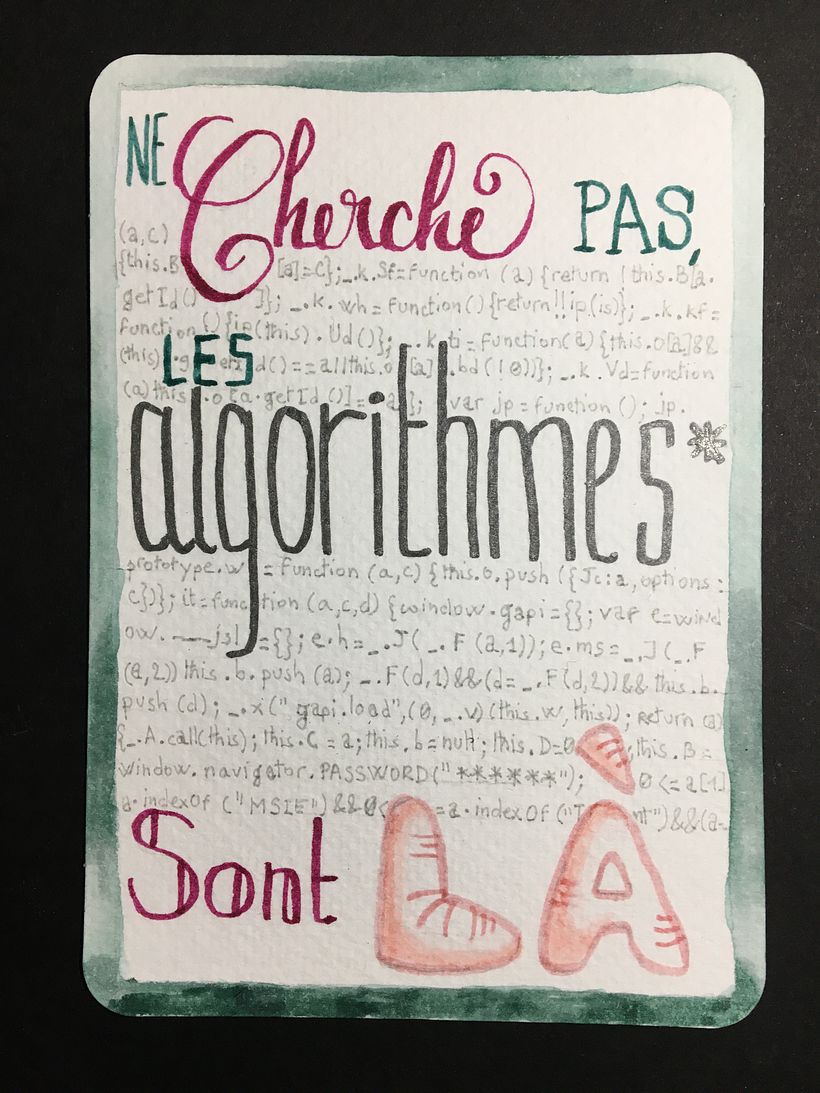 NE Cherche PAS,
(a,c)
{this.B [a]=C};_.k.Sf=function (a) {return !this.B[a.
getId() ]}; _.k. wh = function(){return!!ip(is)}; _.k.kf=
function(){ip(this).Ud()}; _.k.ti=function(a){this.O[a]&&
LES
(this) .g d()==allthis.o [a] .bd(!0))}; _.k.Vd=function
(a)this .o [a.getId()]= a}; var jp=function(); jp.
algorithmes*
prototype.w =function (a,c) {this.b.push ({Jc:a,options:
c})}; it=function (a,c,d) {window.gapi={}; var e=wind
ow.___jsl ={}; e.h=_.J(_.F (a,1)); e.ms=_.J(_.F
(a,2)) this.b.push (a); _.F(d,1)&&(d=_.F(d,2))&& this.b.
push (d); _.x(" gapi.load",(0,_.v)(this.w,this)); return (a)
{_.A.call(this); this.C=a; this.b=null; this.D=0 ;this.B=
window.navigator.PASSWORD("******"); 0<=a[1]
a.indexOf ("MSIE")&&0< =a.indexOf("T nt")&&(a=
Sont LÀ